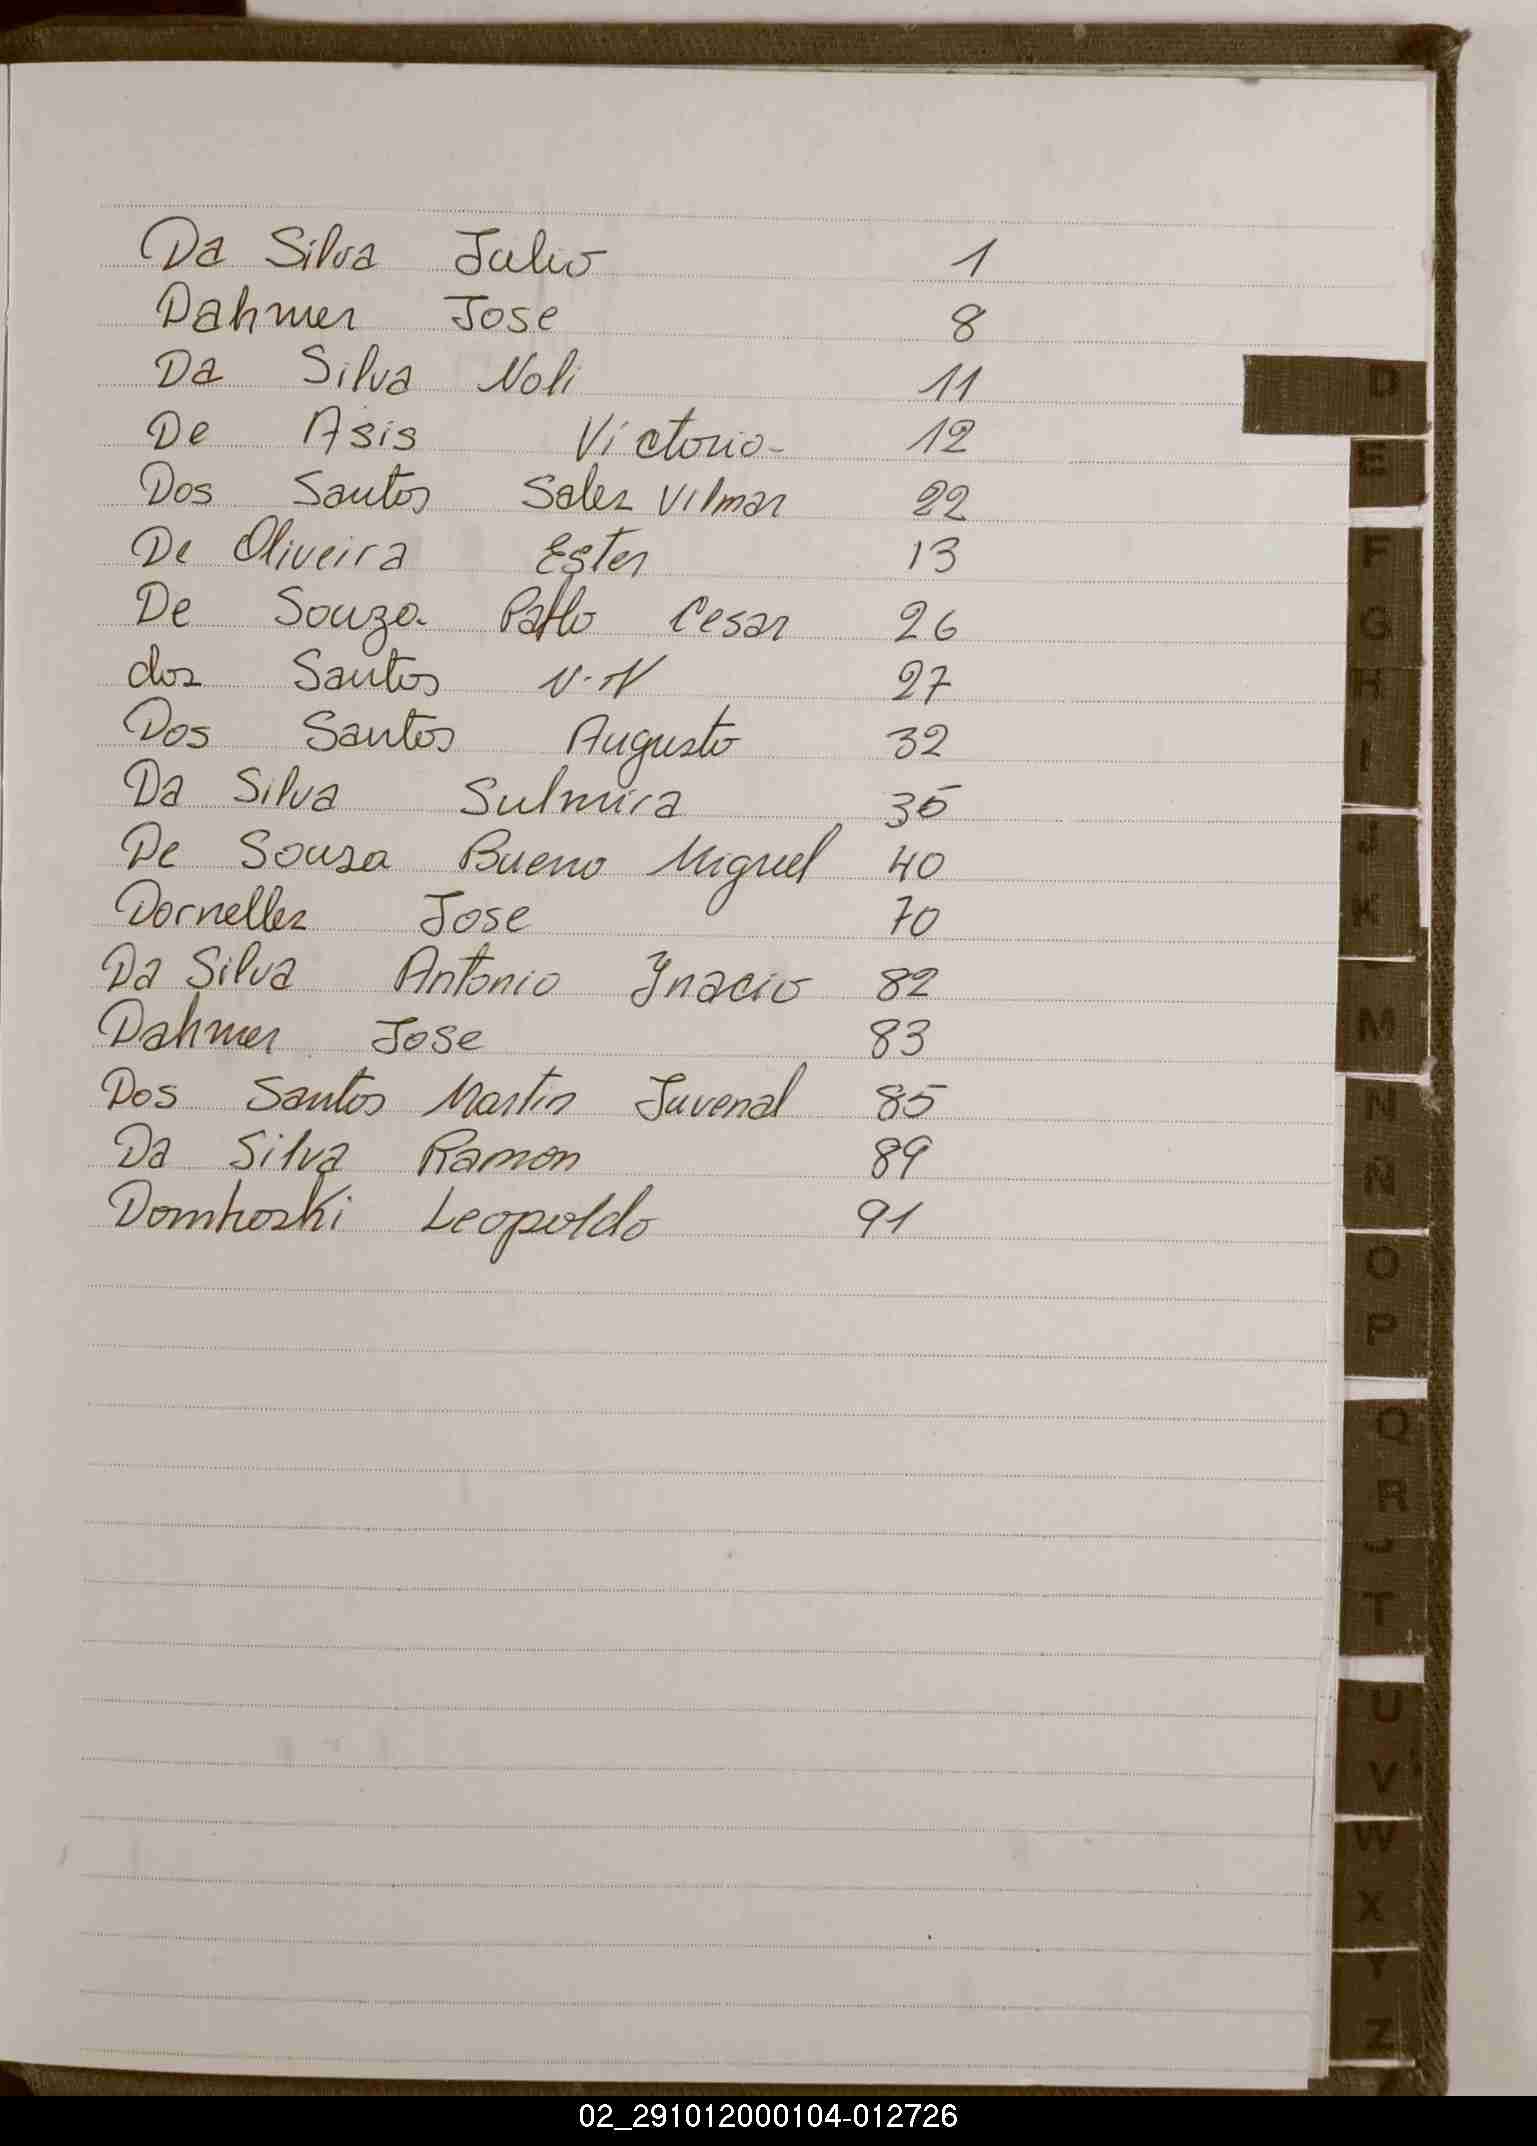 Da Silva Julio 1
Dahmer Jose 8
Da Silva Noli 11
De Asis Victorio- 12
Dos Santos Sales Vilmar 22
De Oliveira Ester 13
De Souza Pablo Cesar 26
dos Santos N.N 27
Dos Santos Augusto 32
Da Silva Sulmira 35
De Sousa Bueno Miguel 40
Dornelles Jose 70
Da Silva Antonio Ynacio 82
Dahmer Jose 83
Dos Santos Martin Juvenal 85
Da Silva Ramon 89
Domhoski Leopoldo 91
D
E
F
G
H
I
J
K
M
N
N
O
P
Q
R
T
U
V
W
X
Y
Z
02_291012000104-012726